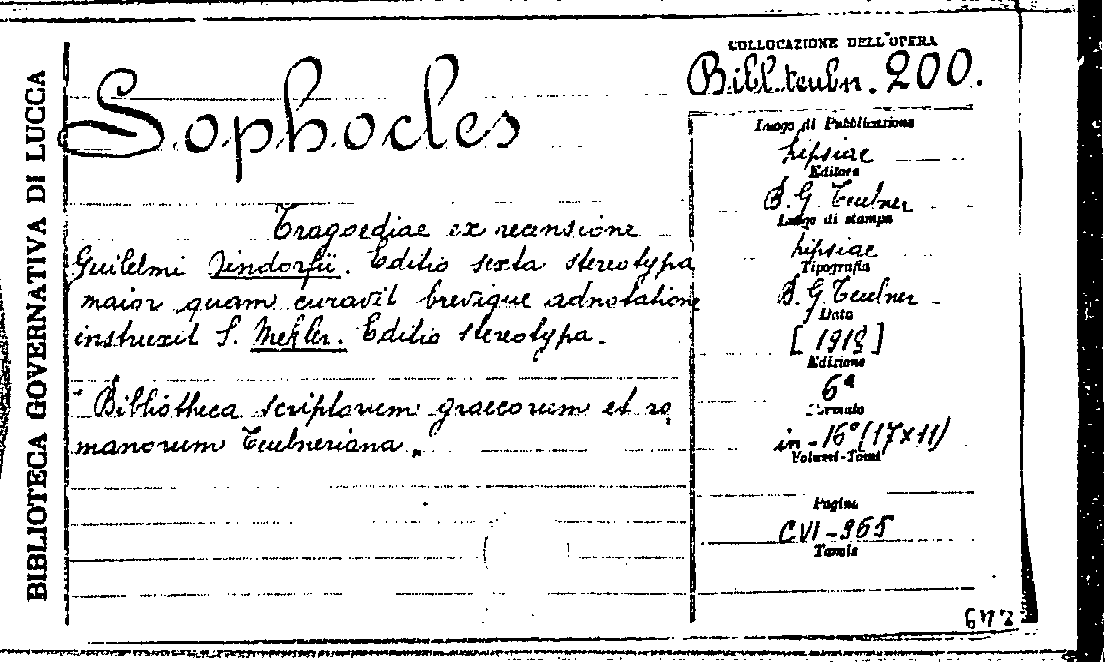 BIBLIOTECA GOVERNATIVA DI LUCCA
COLLOCAZIONE DELL'OPERA
Bibl. teubn. 200.
Sophocles
Tragoediae ex recensione
Guilelmi Dindorfii. Editio sexta stereotypa
maior quam curavit brevique adnotatione
instruxit S. Mekler. Editio stereotypa.
"Bibliotheca scriptorum graecorum et ro
manorum Teubneriana„
Luogo di Pubblicazione
Lipsiae
Editore
B. G. Teubner
Luogo di stampa
Lipsiae
Tipografia
B. G Teubner
Data
[1918]
Edizione
6ª
Formato
in-16° (17×11)
Volumi-Tomi
Pagine
CVI-365
Tavole